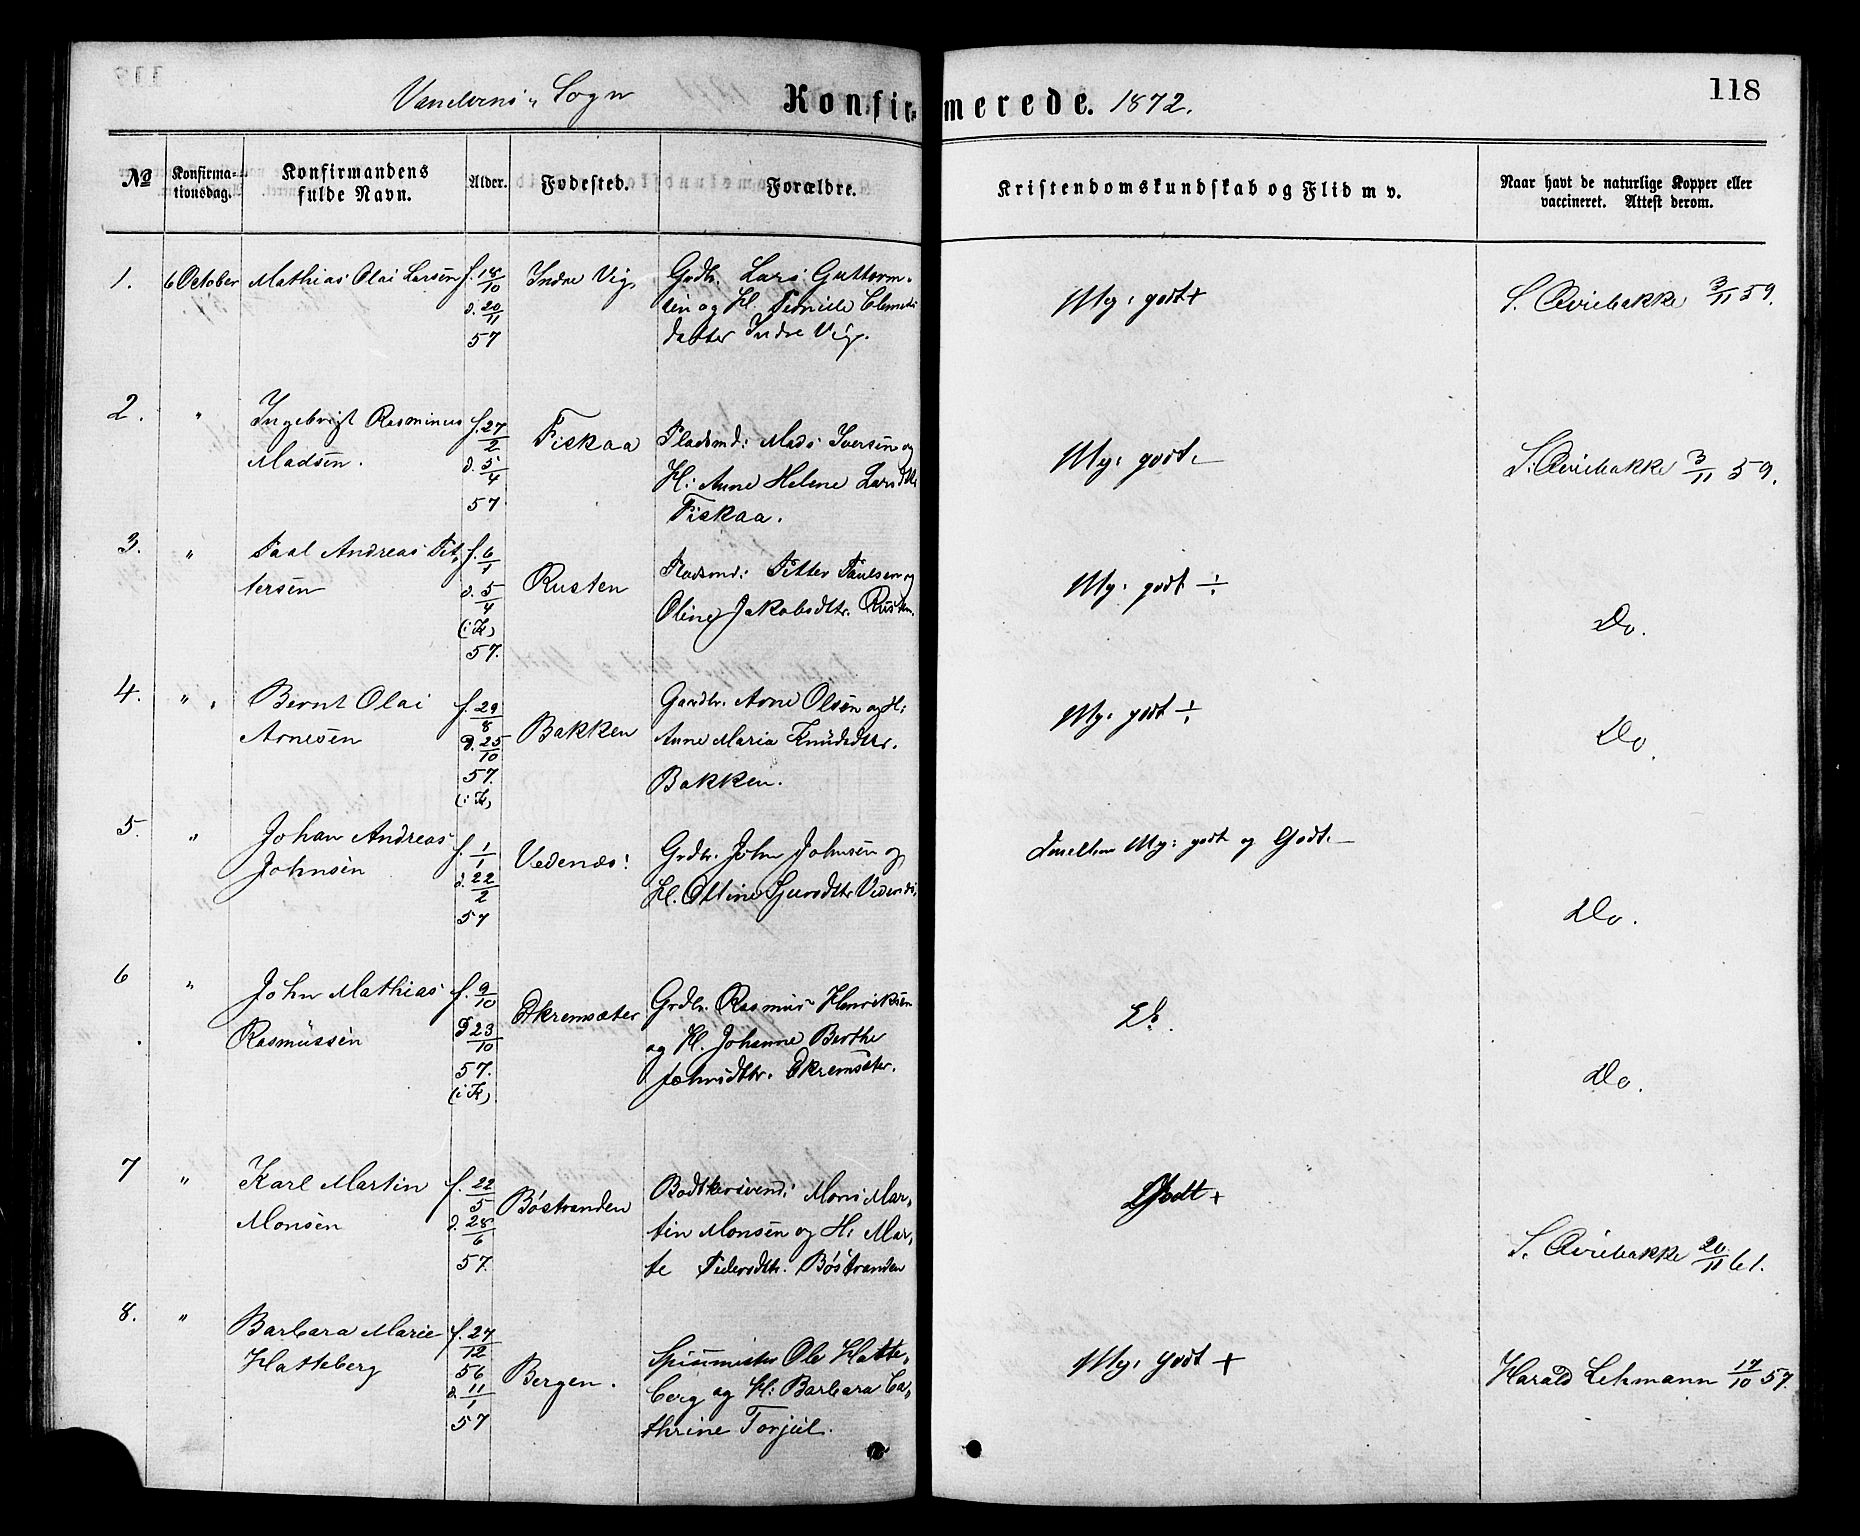 Sogn
Konfirmerede. 1872.
118
No
Konfirma-
tionsdag.
Konfirmandens
fulde Navn.
Alder.
Fødested.
Forældre.
Kristendomskundskab og Flid m v.
Naar havt de naturlige Kopper eller
vaccineret. Attest derom.
1. 6 October Mathias Olai Larsen f. 18/10 Indre Vig Grdbr. Lars Guttorm- Mg: godt + 3/11 59.
d. 20/11 sen og H.
57 datter Indre Vig.
2. " Ingebrigt Rasminus f. 27/2 Fiskaa Pladsmd: Mads Iversen og Mg: godt. 3/11 59.
Madsen. d. 5/4 H: Anne Helene Larsdtr
57 Fiskaa.
3. " Paal Andreas Pet- f. 6/1 Rusten Pladsmd: Petter Paulsen og Mg: godt ÷ Do.
tersen d. 5/4 Oline Jakobsdtr. Rusten.
(i K)
57.
4. " Bernt Olai f. 29/8 Bakken Gardbr. Arne Olsen og H: Mg: godt ÷ Do.
Arnesen D. 25/10 Anne Maria Knudsdtr.
57. Bakken.
(i K)
5. " Johan Andreas f. 1/1 Vedenæs: Grdbr. John Johnsen og Imellem Mg: godt og Godt. Do.
Johnsen d. 22/2 H. Oline
57
6 " John Mathias f. 9/10 Ekremsæter Grdbr. Rasmus Henriksen Do.
Rasmussen D 23/10 og H. Johanne Berthe
57. Johnsdtr. Ekremsæter.
(i K)
7 " Karl Martin f. 22/5 Bøstranden Bødkersvend: Mons Mar- Godt + 20/11 61.
Monsen d. 28/6 tin Monsen og H: Mar-
57. te Pedersdtr. Bøstranden
8. " Barbara Marie f. 27/12 Bergen. Ole Hatte- Mg: godt + Harald Lehmann 17/10 57.
Hatteberg 56 berg og H: Barbara Ca-
d. 11/1 thrine Torjul.
57